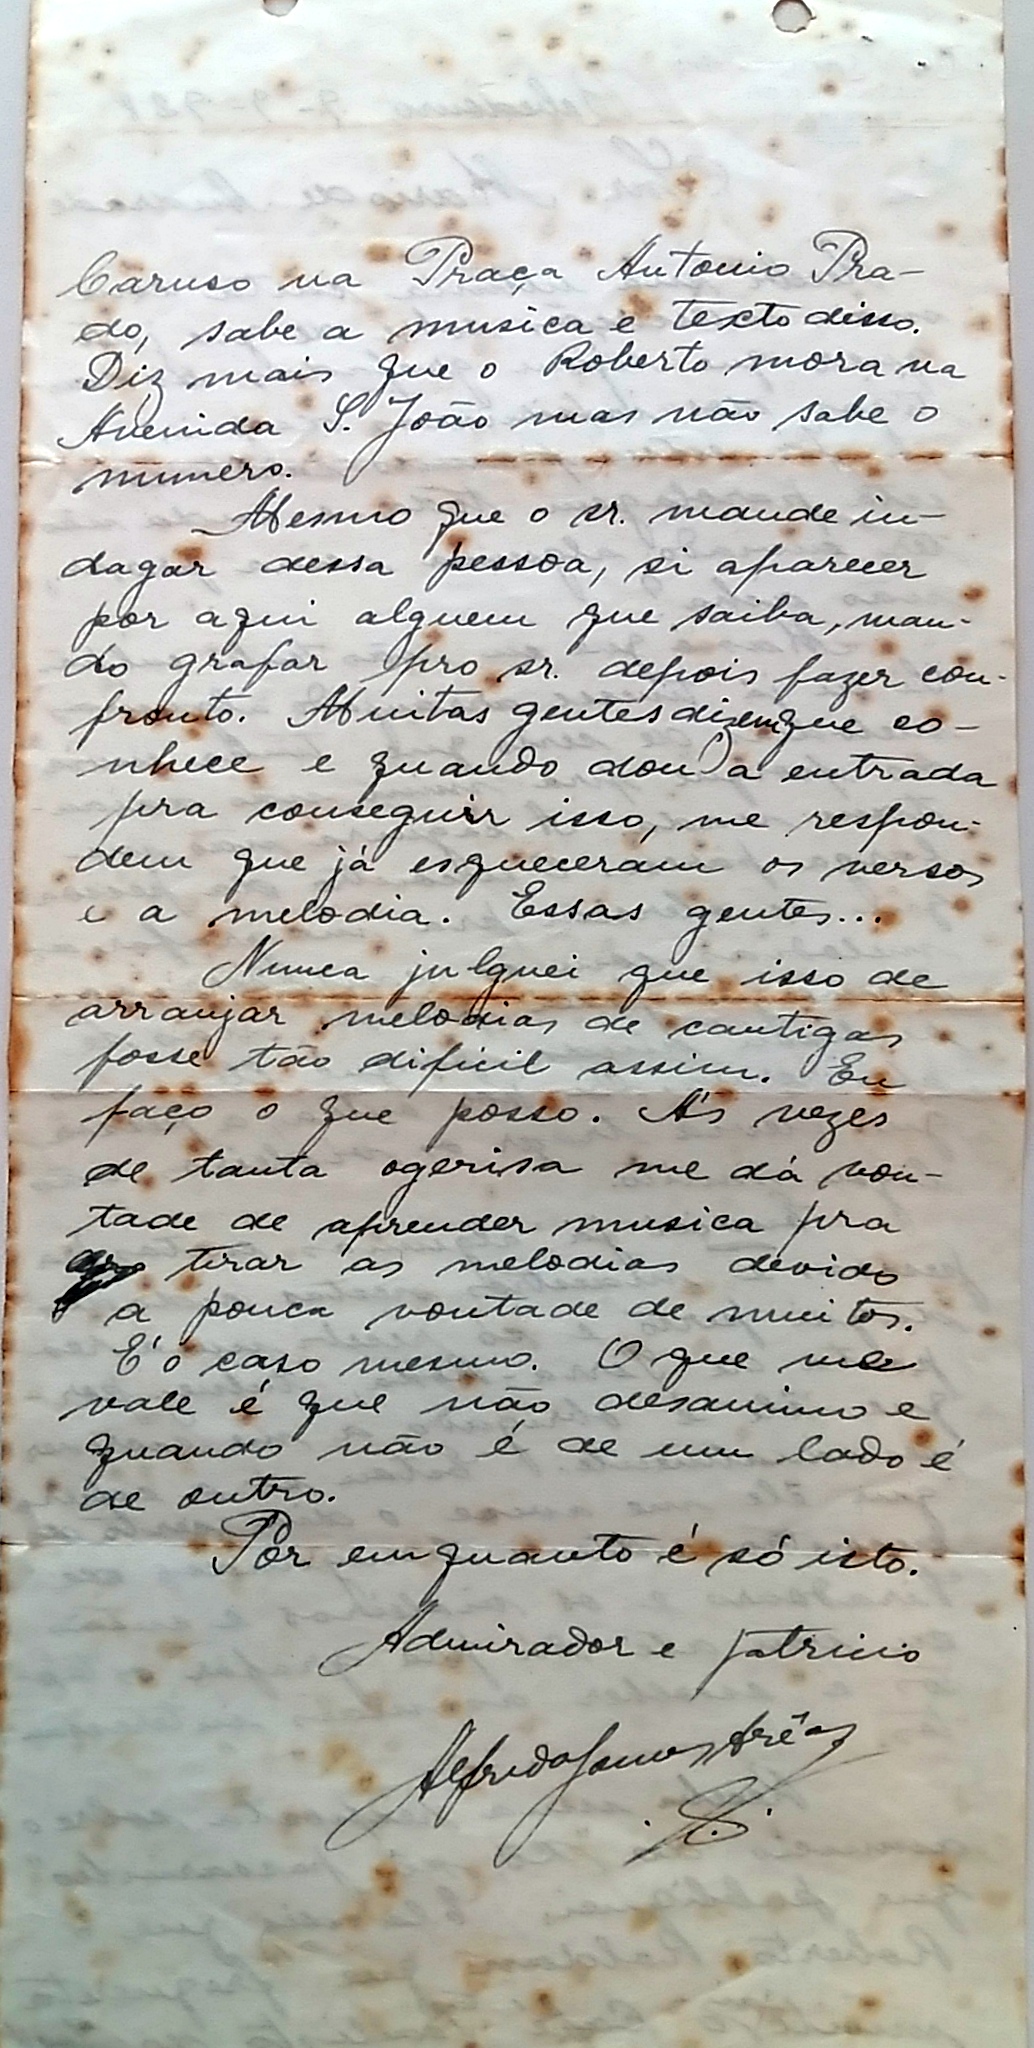 Caruso na Praça Antonio Pra-
do, sabe a musica e texto disso.
Diz mais que o Roberto mora na
Avenida S. João mas não sabe o
numero.
Mesmo que o sr. mande in-
dagar dessa pessoa, si aparecer
por aqui alguem que saiba, man-
do grafar pro sr. depois fazer con-
fronto. Muitas gentes dizem que co-
nhece e quando dou a entrada
pra conseguir isso, me respon-
dem que já esqueceram os versos
e a melodia. Essas gentes...
Nunca julguei que isso de
arranjar melodias de cantigas
fosse tão dificil assim. Eu
faço o que posso. Ás vezes
de tanta ogerisa me dá von-
tade de aprender musica pra
tirar as melodias devido
a pouca vontade de muitos.
E' o caso mesmo. O que me
vale é que não desanimo e
quando não é de um lado é
de outro.
Por emquanto é só isto.
Admirador e patricio
Alfredo Arêas